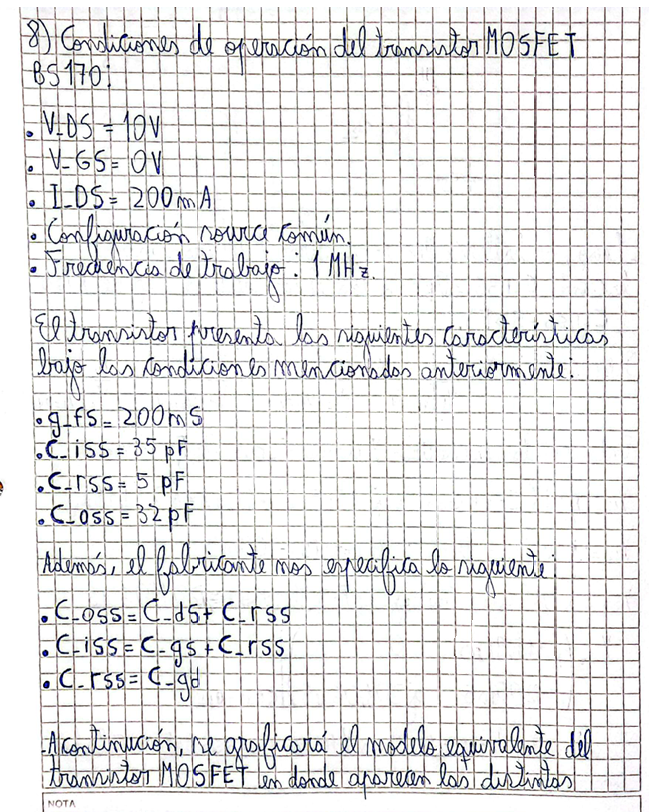 8) Condiciones de operación del transistor MOSFET
BS170:
• V_DS = 10V
• V_GS = 0V
• I_DS = 200mA
• Configuración source común.
• Frecuencia de trabajo: 1 MHz.
El transistor presenta las siguientes características
bajo las condiciones mencionadas anteriormente:
• g_fs = 200mS
• C_iss = 35 pF
• C_rss = 5 pF
• C_oss = 32 pF
Además, el fabricante nos especifica lo siguiente:
• C_oss = C_ds + C_rss
• C_iss = C_gs + C_rss
• C_rss = C_gd
A continución, se graficará el modelo equivalente del
transistor MOSFET en donde aparecen las distintas
NOTA